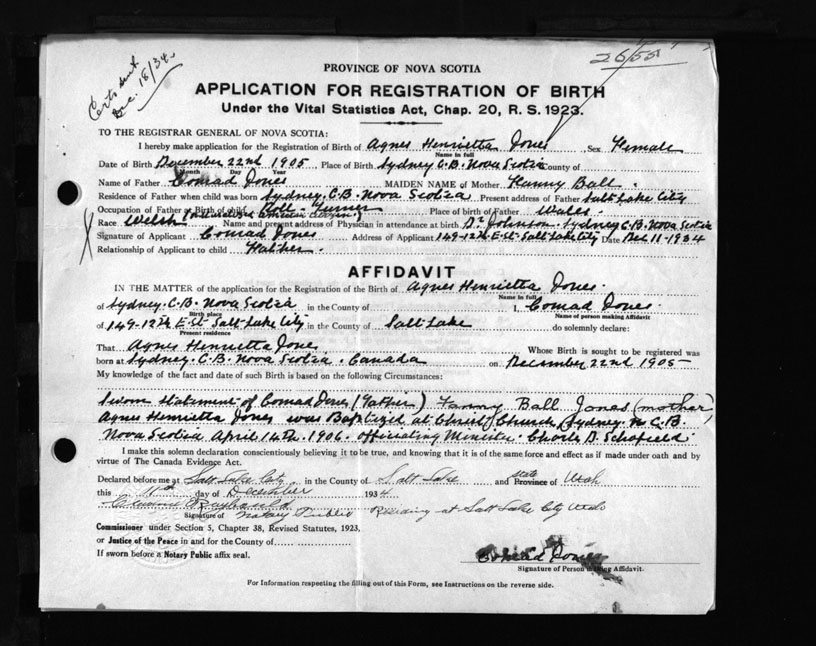 Certs sent
Dec. 18/34.
26/55
PROVINCE OF NOVA SCOTIA
APPLICATION FOR REGISTRATION OF BIRTH
Under the Vital Statistics Act, Chap. 20, R. S. 1923.
TO THE REGISTRAR GENERAL OF NOVA SCOTIA:
I hereby make application for the Registration of Birth of Agnes Henrietta Jones Sex Female
Name in full
Date of Birth December 22nd 1905 Place of Birth Sydney C.B. Nova Scotia County of
Month Day Year
Name of Father Conrad Jones MAIDEN NAME of Mother Fanny Ball
Residence of Father when child was born Sydney. C.B. Nova Scotia Present address of Father Salt Lake City
Occupation of Father at Birth of child Roll-Turner Place of birth of Father Wales
Race Welsh Name and present address of Physician in attendance at birth Dr Johnson. Sydney C.B. Nova Scotia
Signature of Applicant Conrad Jones Address of Applicant 149-12th E. St. Salt Lake City Date Dec 11-1934
Relationship of Applicant to child Father.
AFFIDAVIT
IN THE MATTER of the application for the Registration of the Birth of Agnes Henrietta Jones.
Name in full
of Sydney. C.B. Nova Scotia in the County of I, Conrad Jones.
Birth place Name of person making Affidavit
of 149-12th E. St. Salt Lake City in the County of Salt Lake do solemnly declare:
Present residence
That Agnes Henrietta Jones Whose Birth is sought to be registered was
born at Sydney. C.B. Nova Scotia. Canada on December 22nd 1905
My knowledge of the fact and date of such Birth is based on the following Circumstances:
Sworn statement of Conrad Jones (Father) Fanny Ball Jones (mother)
Agnes Henrietta Jones was Baptized at Christ Church, Sydney. C.B.
Nova Scotia April 14th. 1906. officiating Minister. Charles D. Schofield.
I make this solemn declaration conscientiously believing it to be true, and knowing that it is of the same force and effect as if made under oath and by
virtue of The Canada Evidence Act.
Declared before me at Salt Lake City in the County of Salt Lake and state Province of Utah
this 11th day of December 1934
Signature of Notary Public Residing at Salt Lake City Utah
Commissioner under Section 5, Chapter 38, Revised Statutes, 1923,
or Justice of the Peace in and for the County of
If sworn before a Notary Public affix seal.
Conrad Jones
Signature of Person making Affidavit.
For Information respecting the filling out of this Form, see Instructions on the reverse side.